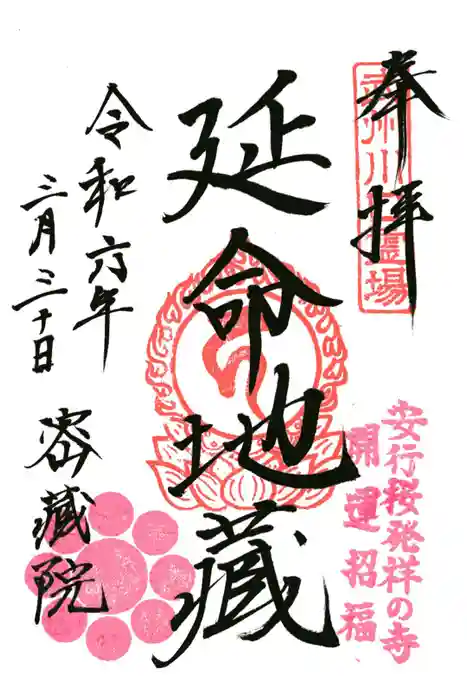 奉拝
武州川口霊場
延命地蔵
安行桜発祥の寺
開運招福
令和六年
三月三十日
密蔵院